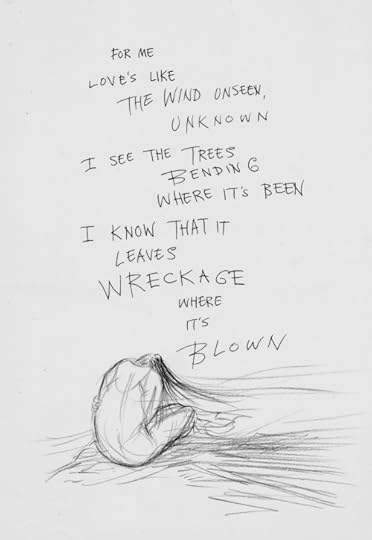 FOR ME
LOVE'S LIKE
THE WIND UNSEEN,
UNKNOWN
I SEE THE TREES
BENDING
WHERE IT'S BEEN
I KNOW THAT IT
LEAVES
WRECKAGE
WHERE
IT'S
BLOWN